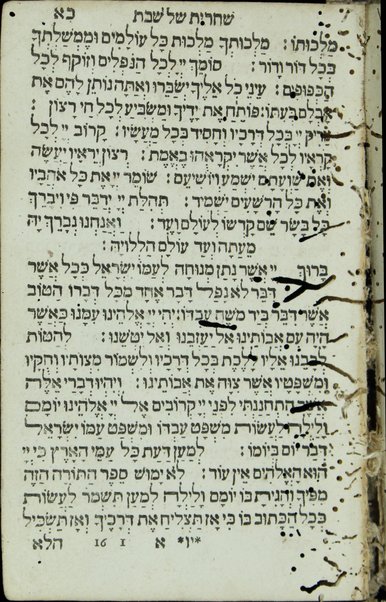 שחרית של שבת כא
מלכותו: מלכותך מלכות כל עולמים וממשלתך
בכל דור ודור: סומך יי לכל הנפלים וזוקף לכל
הכפופים: עיני כל אליך ישברו ואתה נותן להם את
אכלם בעתו: פותח את ידיך ומשביע לכל חי רצון:
צדיק יי בכל דרכיו וחסיד בכל מעשיו: קרוב יי לכל
קראיו לכל אשר יקראהו באמת: רצון יראיו יעשה
ואת שועתם ישמע ויושיעם: שומר יי את כל אהביו
ואת כל הרשעים ישמיד: תהלת יי ידבר פי ויברך
כל בשר שם קדשו לעולם ועד: ואנחנו נברך יה
מעתה ועד עולם הללויה:
ברוך יי אשר נתן מנוחה לעמו ישראל ככל אשר
דבר לא נפל דבר אחד מכל דברו הטוב
אשר דבר ביד משה עבדו: יהי יי אלהינו עמנו כאשר
היה עם אבותינו אל יעזבנו ואל יטשנו: להטות
לבבנו אליו ללכת בכל דרכיו ולשמור מצותיו וחקיו
ומשפטיו אשר צוה את אבותינו: ויהיו דברי אלה
אשר התחננתי לפני יי קרובים אל יי אלהינו יומם
ולילה לעשות משפט עבדו ומשפט עמו ישראל
דבר יום ביומו: למען דעת כל עמי הארץ כי יי
הוא האלהים אין עוד: לא ימוש ספר התורה הזה
מפיך והגית בו יומם ולילה למען תשמר לעשות
בכל הכתוב בו כי אז תצליח את דרכיך ואז תשכיל
*יו* א 1 16 הלא